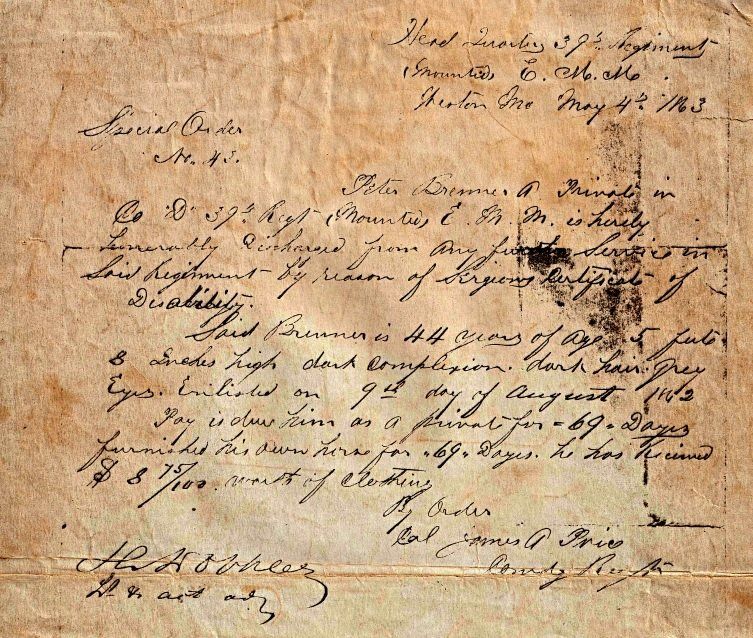 Head Quarters 39th Regiment
Mounted E. M. M.
Weston Mo May 4th 1863
Special Order
No. 43.
Peter Brenner A Private in
Co "D" 39th Regt Mounted E. M. M. is hereby
honerably discharged from any further Service in
Said Regiment by reason of Sirgions Certificate of
Disability.
Said Brenner is 44 years of age 5 feete
8 Inches high dark Complexion. dark hair. Grey
Eyes. Enlisted on 9th day of August 1862
Pay is due him as a private for "69" Dayes
furnished his own horse for "69" Dayes. he has Received
$ 8 75/100 worth of Clothing
By Order
Col James A Price
Comdg Regt
Lt & act adj